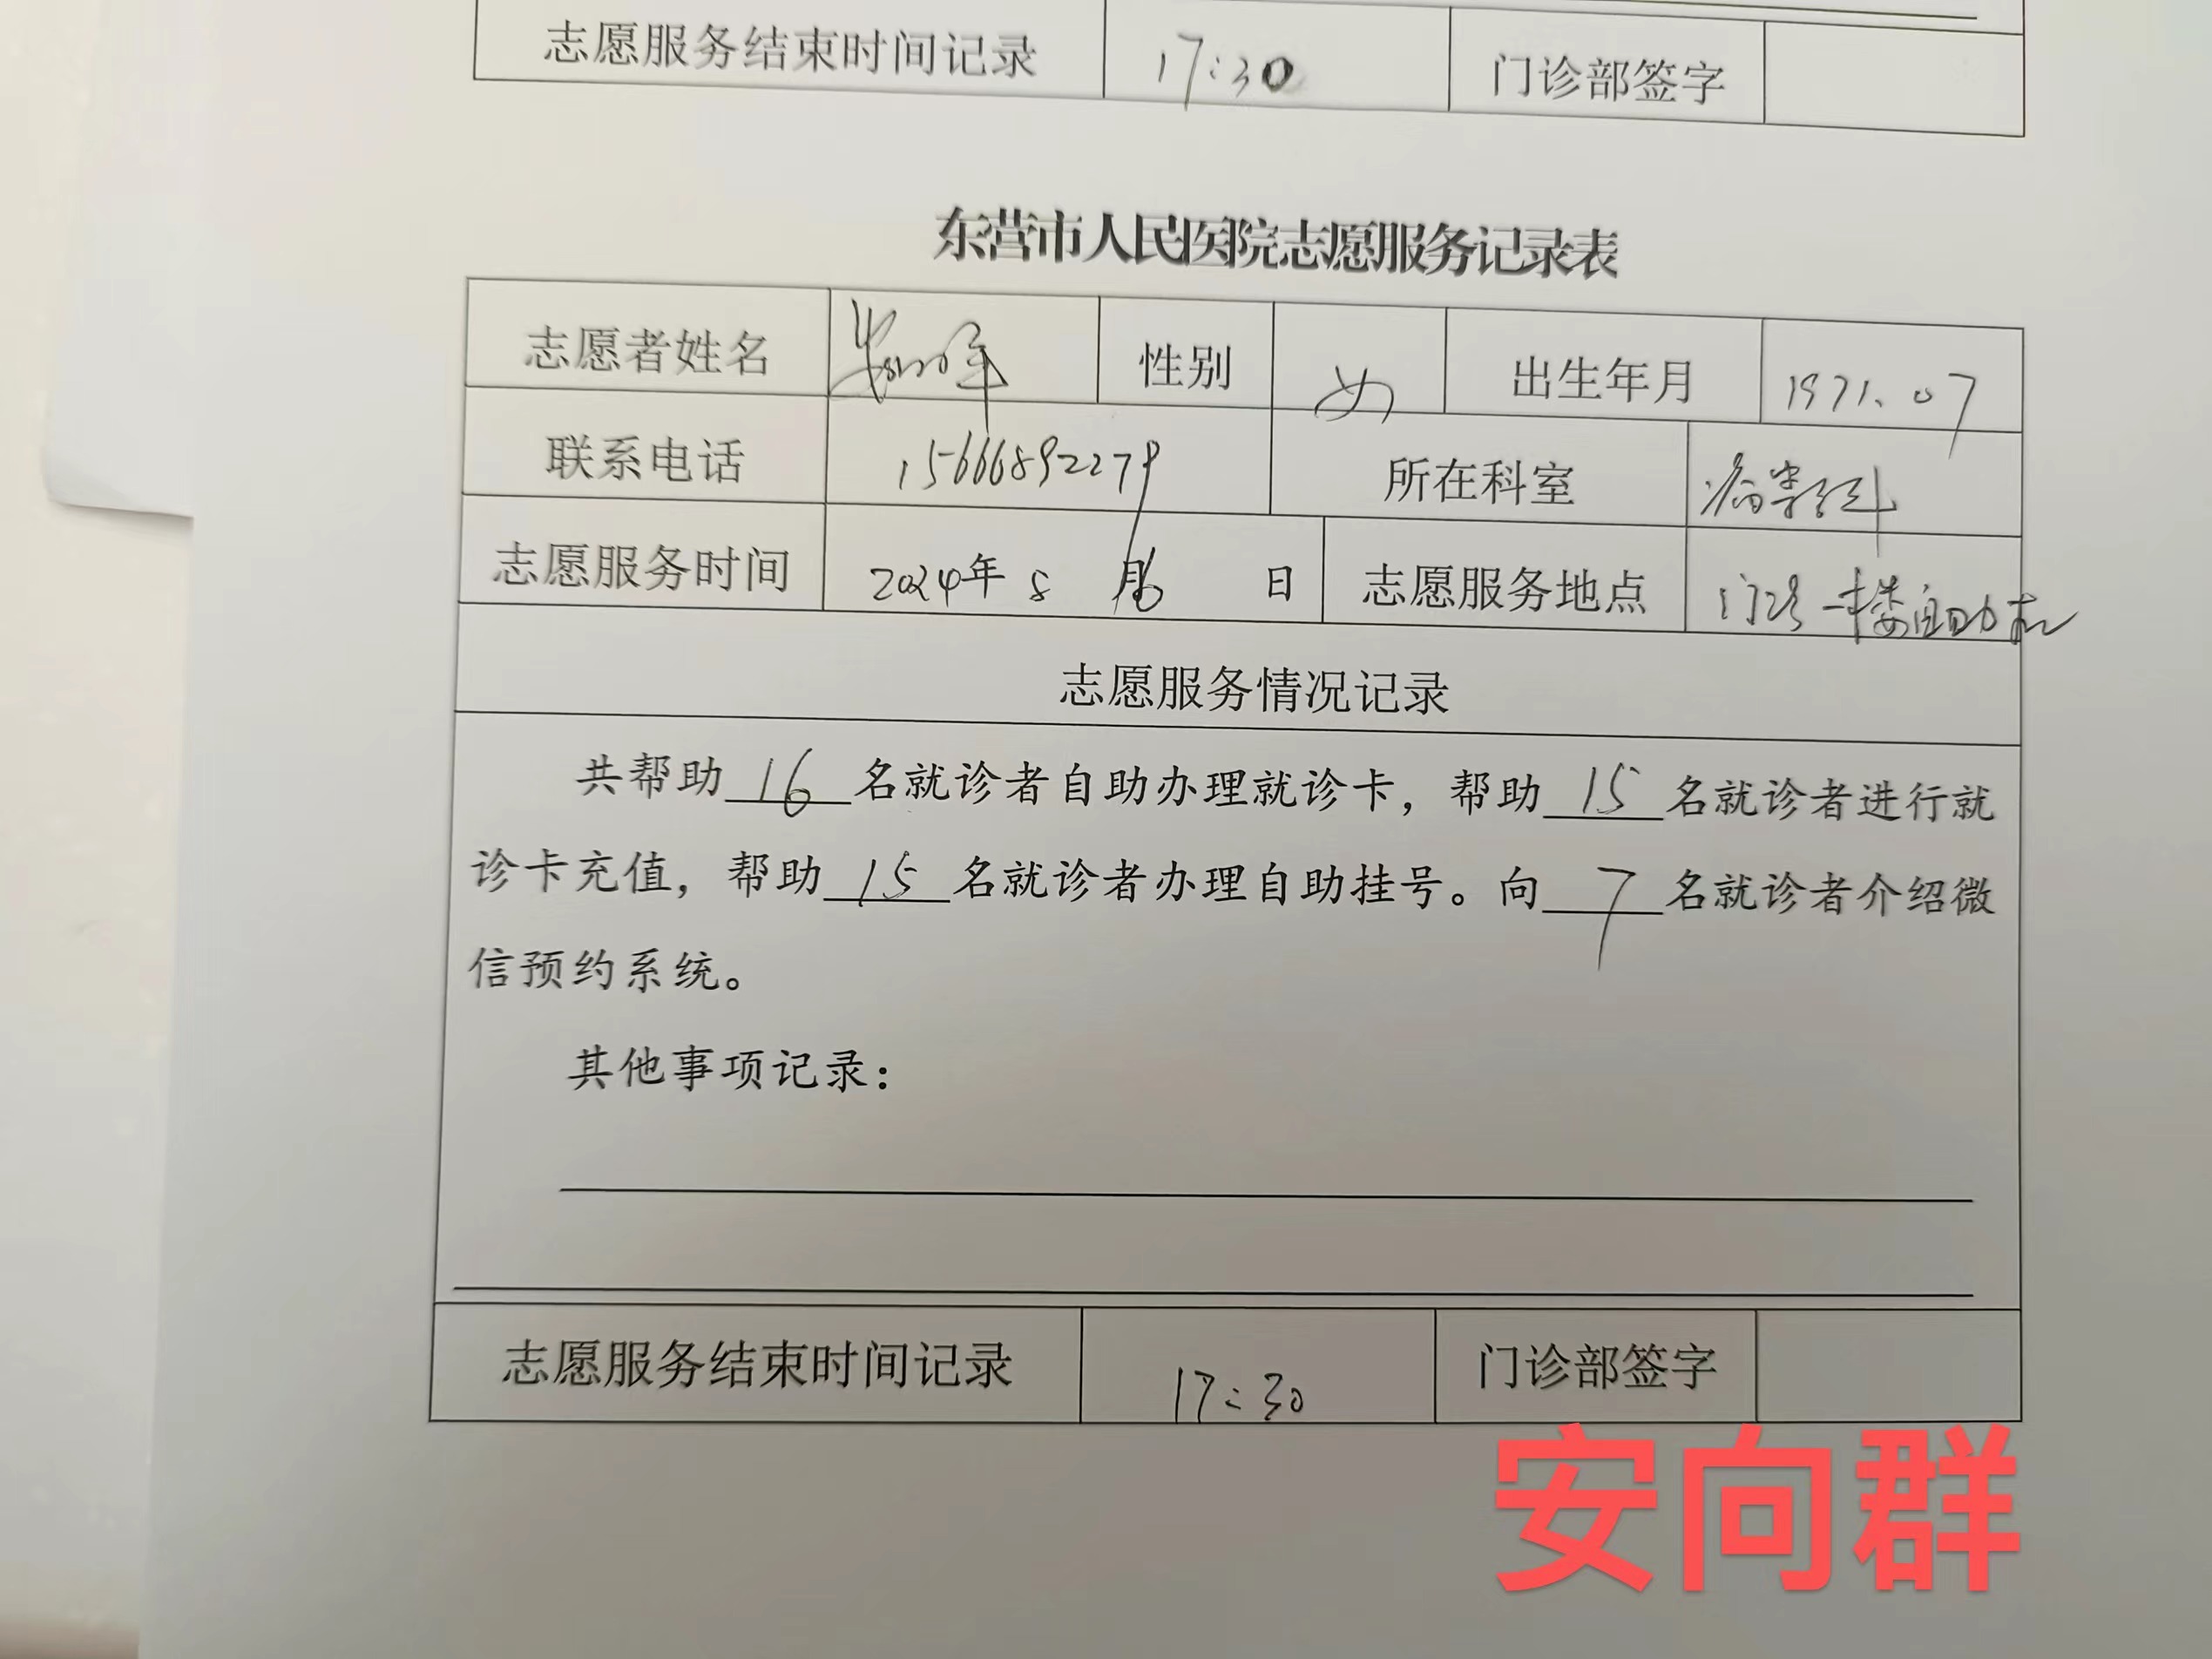 志愿服务结束时间记录 17:30 门诊部签字
东营市人民医院志愿服务记录表
志愿者姓名 性别 女 出生年月 1971.07
联系电话 15666892279 所在科室 病案科
志愿服务时间 2024年 8 月16 日 志愿服务地点 门诊一楼自助机
志愿服务情况记录
共帮助 16 名就诊者自助办理就诊卡，帮助 15 名就诊者进行就
诊卡充值，帮助 15 名就诊者办理自助挂号。向 7 名就诊者介绍微
信预约系统。
其他事项记录：
志愿服务结束时间记录 17:30 门诊部签字
安向群